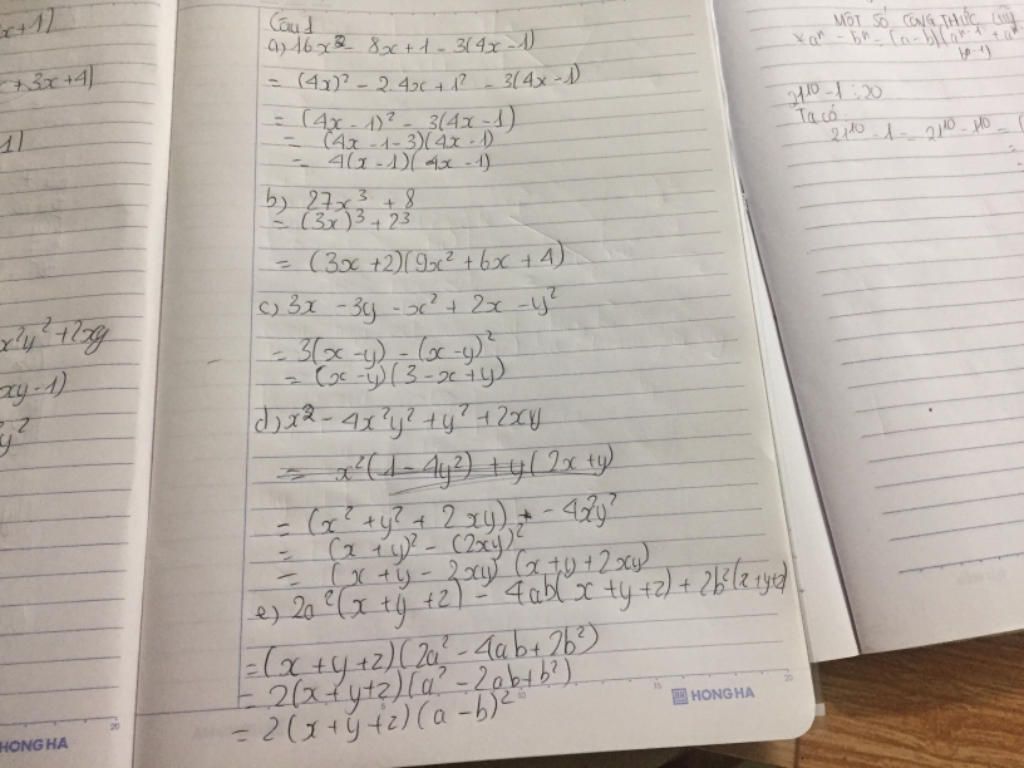 x+1]
+3x+4]
1]
x²y²+2xy
xy-1)
y²
HONG HA
Câu 1
a) 16x² - 8x + 1 - 3(4x - 1)
= (4x)² - 2.4x + 1² - 3(4x - 1)
= (4x - 1)² - 3(4x - 1)
= (4x - 1 - 3)(4x - 1)
= 4(x - 1)(4x - 1)
b) 27x³ + 8
= (3x)³ + 2³
= (3x + 2)(9x² + 6x + 4)
c) 3x - 3y - x² + 2x - y²
= 3(x - y) - (x - y)²
= (x - y)(3 - x + y)
d) x² - 4x²y² + y² + 2xy
= x²(1 - 4y²) + y(2x + y)
= (x² + y² + 2xy) - 4x²y²
= (x + y)² - (2xy)²
= (x + y - 2xy)(x + y + 2xy)
e) 2a²(x + y + z) - 4ab(x + y + z) + 2b²(x + y + z)
= (x + y + z)(2a² - 4ab + 2b²)
= 2(x + y + z)(a² - 2ab + b²)
= 2(x + y + z)(a - b)²
5 10 15 20
HONG HA
MỘT SỐ CÔNG THỨC LŨY
* aⁿ - bⁿ = (a - b)(aⁿ⁻¹ + aⁿ
21¹⁰ - 1 : 20
Ta có
21¹⁰ - 1 = 21¹⁰ - 1¹⁰ = (
=